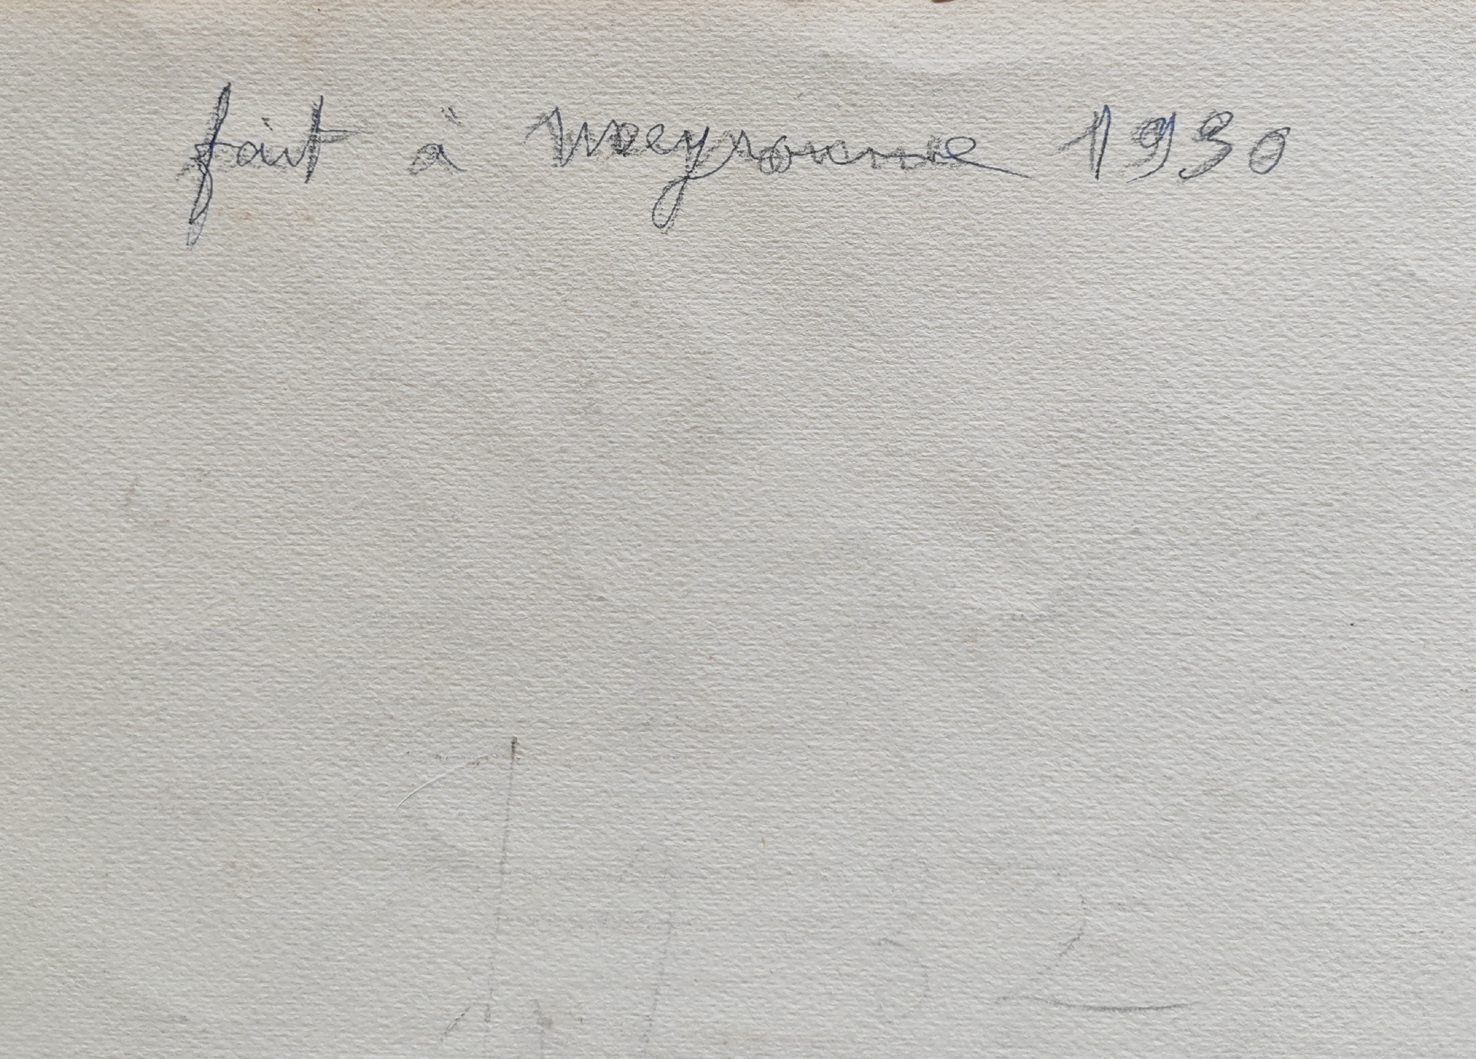 fait à Meyronne 1930